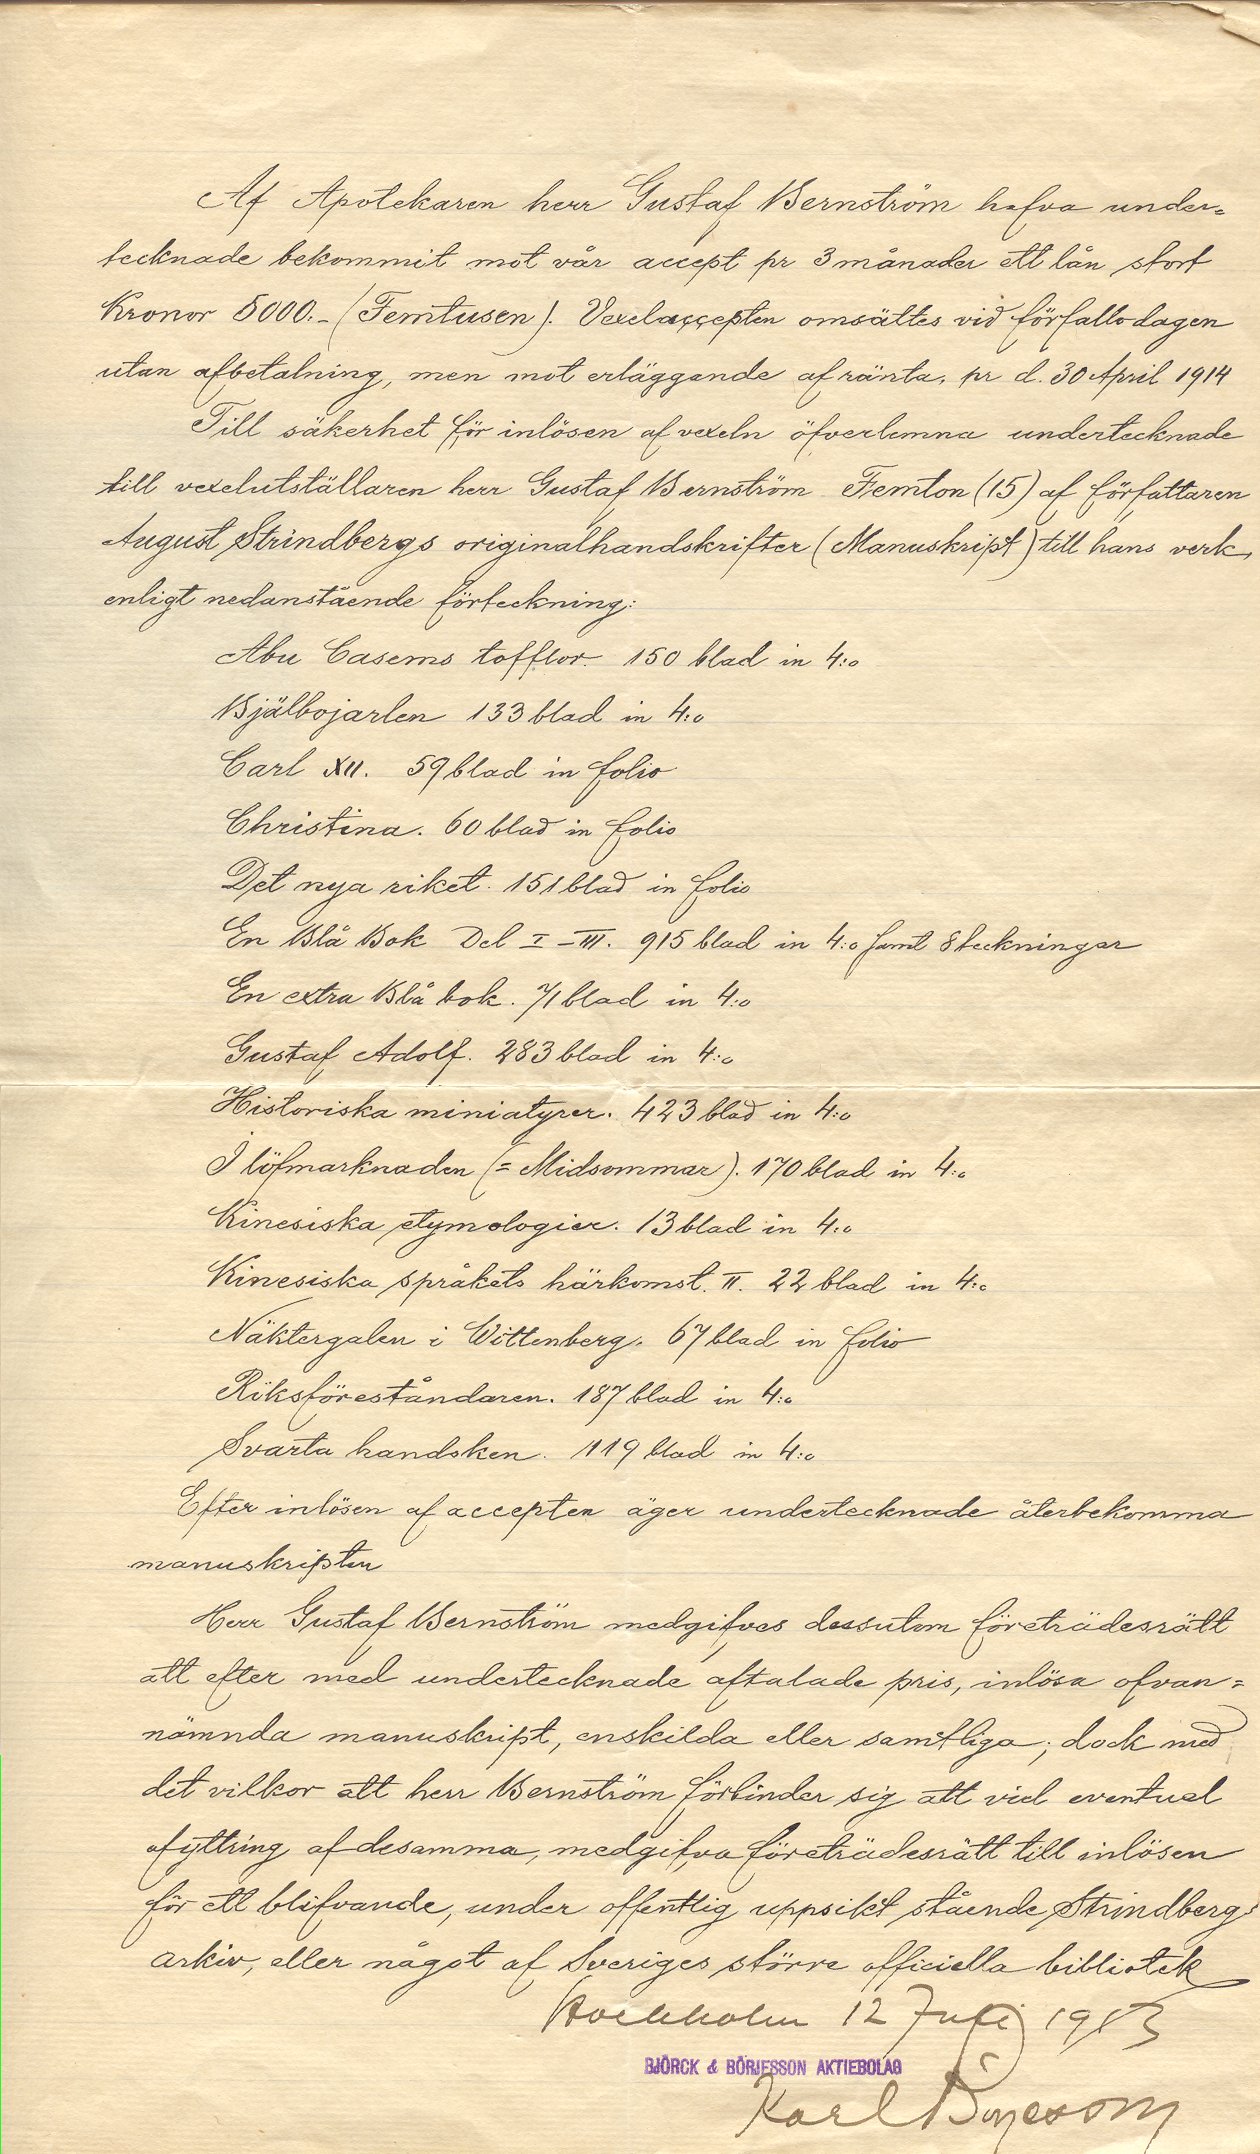 Af Apotekaren herr Gustaf Bernström hafva under=
tecknade bekommit mot vår accept pr 3 månader ett lån stort
Kronor 5000.- (Femtusen). Vexelaccepten omsättes vid förfallodagen
utan afbetalning, men mot erläggande af ränta, pr d. 30 April 1914
Till säkerhet för inlösen af vexeln öfverlemna undertecknade
till vexelutställaren herr Gustaf Bernström Femton (15) af författaren
August Strindbergs originalhandskrifter (Manuskript) till hans verk,
enligt nedanstående förteckning:
Abu Casems tofflor. 150 blad in 4:o
Bjälbojarlen 133 blad in 4:o
Carl XII. 59 blad in folio
Christina. 60 blad in folio
Det nya riket. 151 blad in folio
En Blå Bok Del I-III. 915 blad in 4:o samt 8 teckningar
En extra Blå bok. 71 blad in 4:o
Gustaf Adolf. 283 blad in 4:o
Historiska miniatyrer. 423 blad in 4:o
I löfmarknaden (= Midsommar). 170 blad in 4:o
Kinesiska etymologier. 13 blad in 4:o
Kinesiska språkets härkomst. II. 22 blad in 4:o
Näktergalen i Wittenberg. 67 blad in folio
Riksföreståndaren. 187 blad in 4:o
Svarta handsken. 119 blad in 4:o
Efter inlösen af accepten äger undertecknade återbekomma
manuskripten
Herr Gustaf Bernström medgifves dessutom företrädesrätt
att efter med undertecknade aftalade pris, inlösa ofvan=
nämnda manuskript, enskilda eller samtliga; dock med
det vilkor att herr Bernström förbinder sig att vid eventuel
afyttring af desamma, medgifva företrädesrätt till inlösen
för ett blifvande, under offentlig uppsikt stående Strindbergs
arkiv, eller något af Sveriges större officiella bibliotek
Stockholm 12 Juli 1913
BJÖRCK & BÖRJESSON AKTIEBOLAG
Karl Börjesson